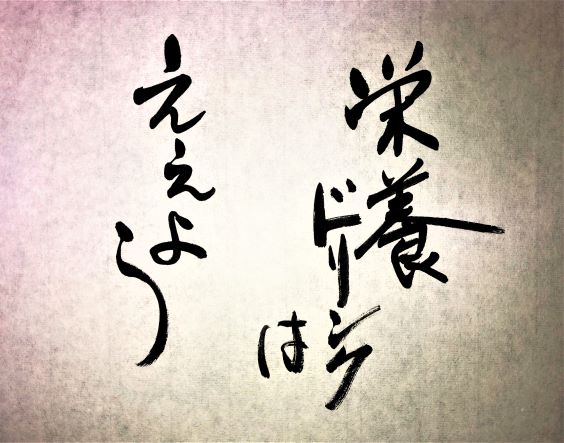 栄養ドリンクは
ええよう